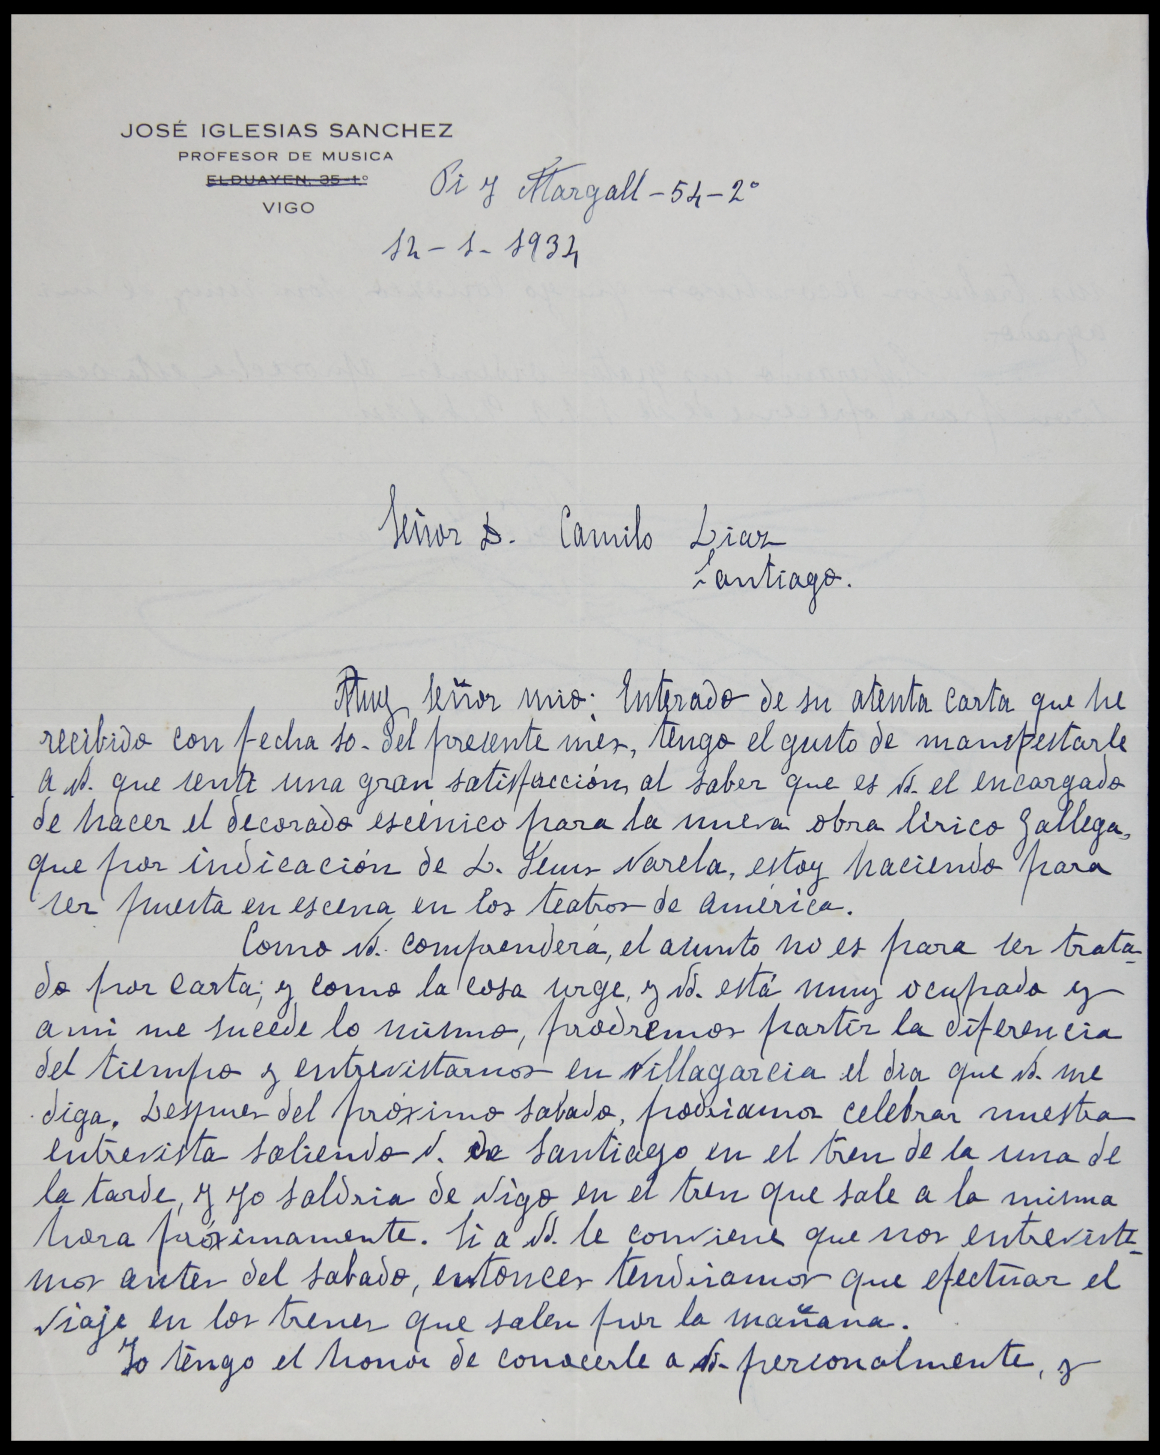 JOSÉ IGLESIAS SANCHEZ
PROFESOR DE MUSICA
ELDUAYEN, 35-1.º
VIGO
Pi y Margall - 54 - 2º
12 - 1 - 1934
Señor D. Camilo Diaz
Santiago.
Muy señor mio: Enterado de su atenta carta que he
recibido con fecha 10 - del presente mes, tengo el gusto de manifestarle
a Vd. que sentí una gran satisfacción, al saber que es Vd. el encargado
de hacer el decorado escénico para la nueva obra lírico Gallega,
que por indicación de D. Varela, estoy haciendo para
ser puesta en escena en los teatros de América.
Como Vd. comprenderá, el asunto no es para ser trata-
do por carta; y como la cosa urge, y Vd. está muy ocupado y
a mi me sucede lo mismo, podremos partir la diferencia
del tiempo y entrevistarnos en Villagarcia el dia que Vd. me
diga. Despues del próximo sabado, podriamos celebrar nuestra
entrevista saliendo V. de Santiago en el tren de la una de
la tarde, y yo saldria de Vigo en el tren que sale a la misma
hora próximamente. Si a Vd. le conviene que nos entreviste-
mos antes del sabado, entonces tendriamos que efectuar el
viaje en los trenes que salen por la mañana.
Yo tengo el honor de conocerle a Vd. personalmente, y